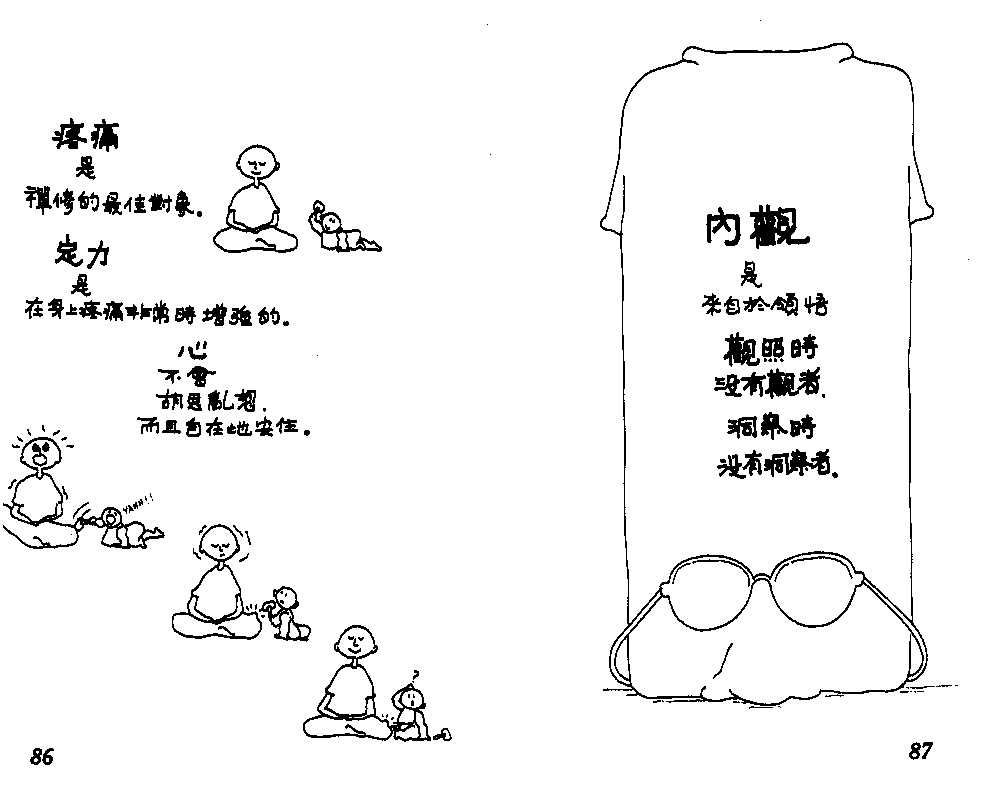 疼痛
是
禪修的最佳對象。
定力
是
在身上疼痛非常時增強的。
心
不會
胡思亂想.
而且自在地安住。
YAHH!!
?
86
內觀
是
來自於領悟
觀照時
沒有觀者.
洞察時
沒有洞察者.
87